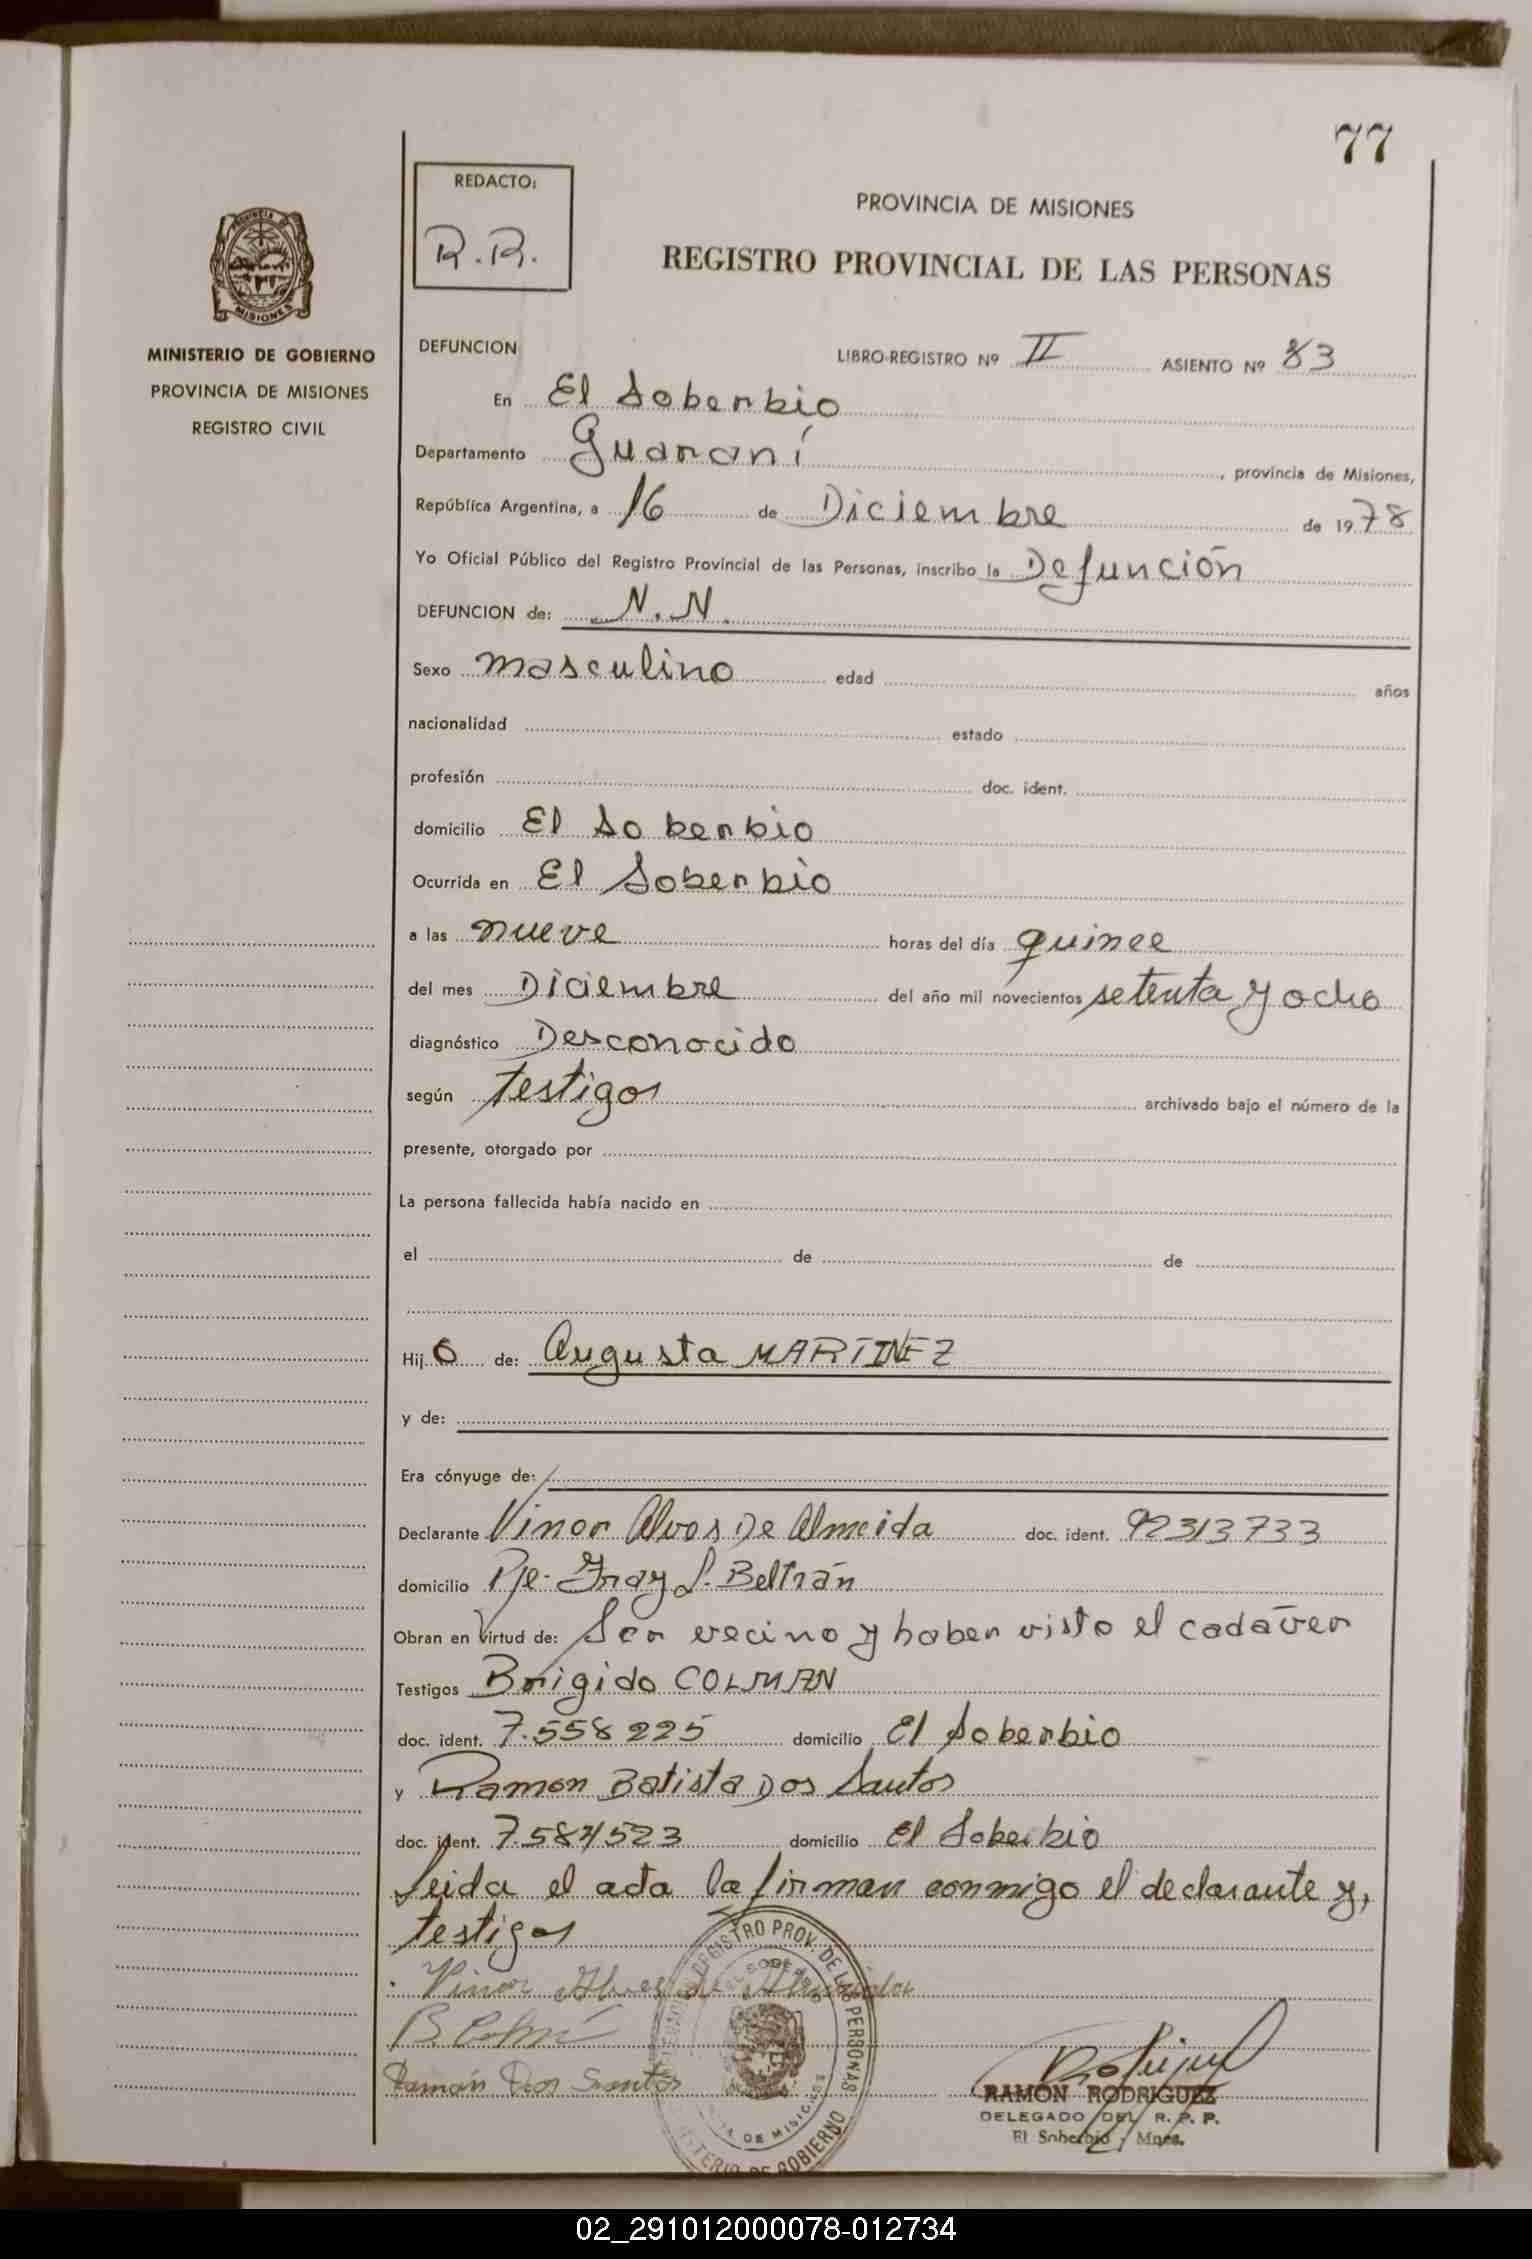 77
REDACTO:
R.R.
PROVINCIA DE MISIONES
REGISTRO PROVINCIAL DE LAS PERSONAS
PROVINCIA DE
MISIONES
MINISTERIO DE GOBIERNO
PROVINCIA DE MISIONES
REGISTRO CIVIL
DEFUNCION
LIBRO-REGISTRO Nº II ASIENTO Nº 83
En El Soberbio
Departamento Guaraní, provincia de Misiones,
República Argentina, a 16 de Diciembre de 1978
Yo Oficial Público del Registro Provincial de las Personas, inscribo la Defunción
DEFUNCION de: N.N.
Sexo masculino edad años
nacionalidad estado
profesión doc. ident.
domicilio El Soberbio
Ocurrida en El Soberbio
a las nueve horas del día quince
del mes Diciembre del año mil novecientos setenta y ocho
diagnóstico Desconocido
según testigos archivado bajo el número de la
presente, otorgado por
La persona fallecida había nacido en
el de de
Hijo de: Augusta MARTINEZ
y de:
Era cónyuge de:
Declarante Vinor Alves De Almeida doc. ident. 92313733
domicilio Pje. Fray L. Beltrán
Obran en virtud de: Ser vecino y haber visto el cadáver
Testigos Brigido COLMAN
doc. ident. 7.558225 domicilio El Soberbio
y Ramon Batista Dos Santos
doc. ident. 7.584523 domicilio El Soberbio
Leida el acta la firman conmigo el declarante y,
testigos
Vinor Alves de Almeida
Ramón Dos Santos
REGISTRO PROV. DE LAS PERSONAS
EL SOBERBIO
DE MISIONES
MINISTERIO DE GOBIERNO
RAMON RODRIGUEZ
DELEGADO DEL R. P. P.
El Soberbio - Mnes.
02_291012000078-012734